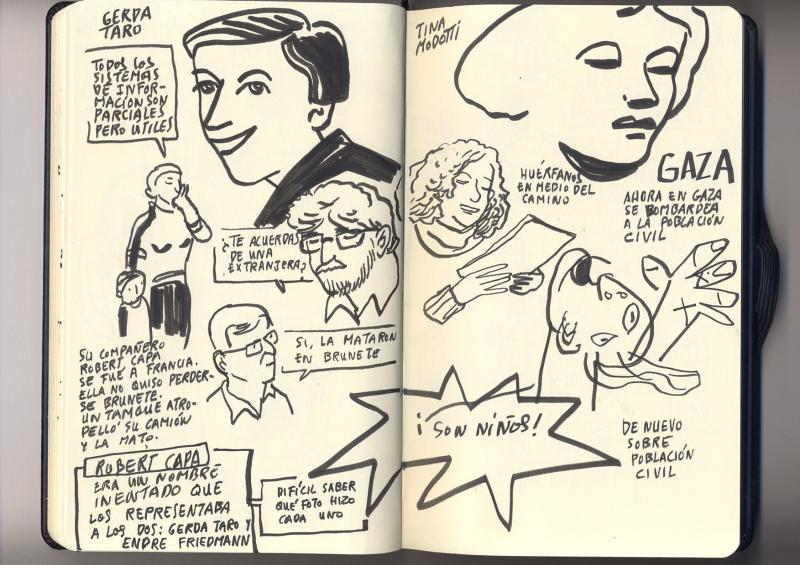 GERDA
TARO
TODOS LOS
SISTEMAS
DE INFOR-
MACIÓN SON
PARCIALES
PERO UTILES
¿TE ACUERDAS
DE UNA
EXTRANJERA?
SI, LA MATARON
EN BRUNETE
SU COMPAÑERO
ROBERT CAPA
SE FUE A FRANCIA.
ELLA NO QUISO PERDER-
SE BRUNETE.
UN TANQUE ATRO-
PELLÓ SU CAMIÓN
Y LA MATÓ.
ROBERT CAPA
ERA UN NOMBRE
INENTADO QUE
LOS REPRESENTABA
A LOS DOS: GERDA TARO Y
ENDRE FRIEDMANN
DIFÍCIL SABER
QUÉ FOTO HIZO
CADA UNO
TINA
MODOTTI
HUÉRFANOS
EN MEDIO DEL
CAMINO
GAZA
AHORA EN GAZA
SE BOMBARDEA
A LA POBLACIÓN
CIVIL
¡SON NIÑOS!
DE NUEVO
SOBRE
POBLACIÓN
CIVIL